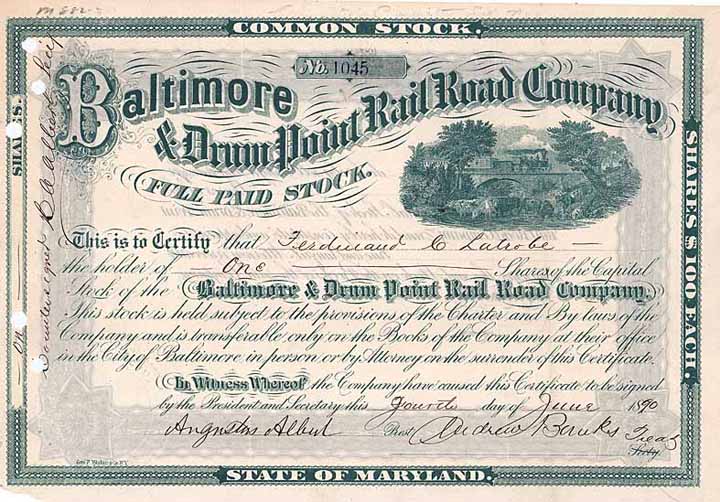 COMMON STOCK.
No. 1045
Baltimore
& Drum Point Rail Road Company
FULL PAID STOCK.
This is to Certify that Ferdinand C Latrobe
the holder of One Shares of the Capital
Stock of the Baltimore & Drum Point Rail Road Company.
This stock is held subject to the provisions of the Charter and By laws of the
Company and is transferable only on the Books of the Company at their office
in the City of Baltimore in person or by Attorney on the surrender of this Certificate.
In Witness Whereof the Company have caused this Certificate to be signed
by the President and Secretary this fourth day of June 1890
Augustus Albert Prest. Andrew Treas
Secty.
STATE OF MARYLAND.
SHARES.
One
Countersigned
SHARES $100 EACH.